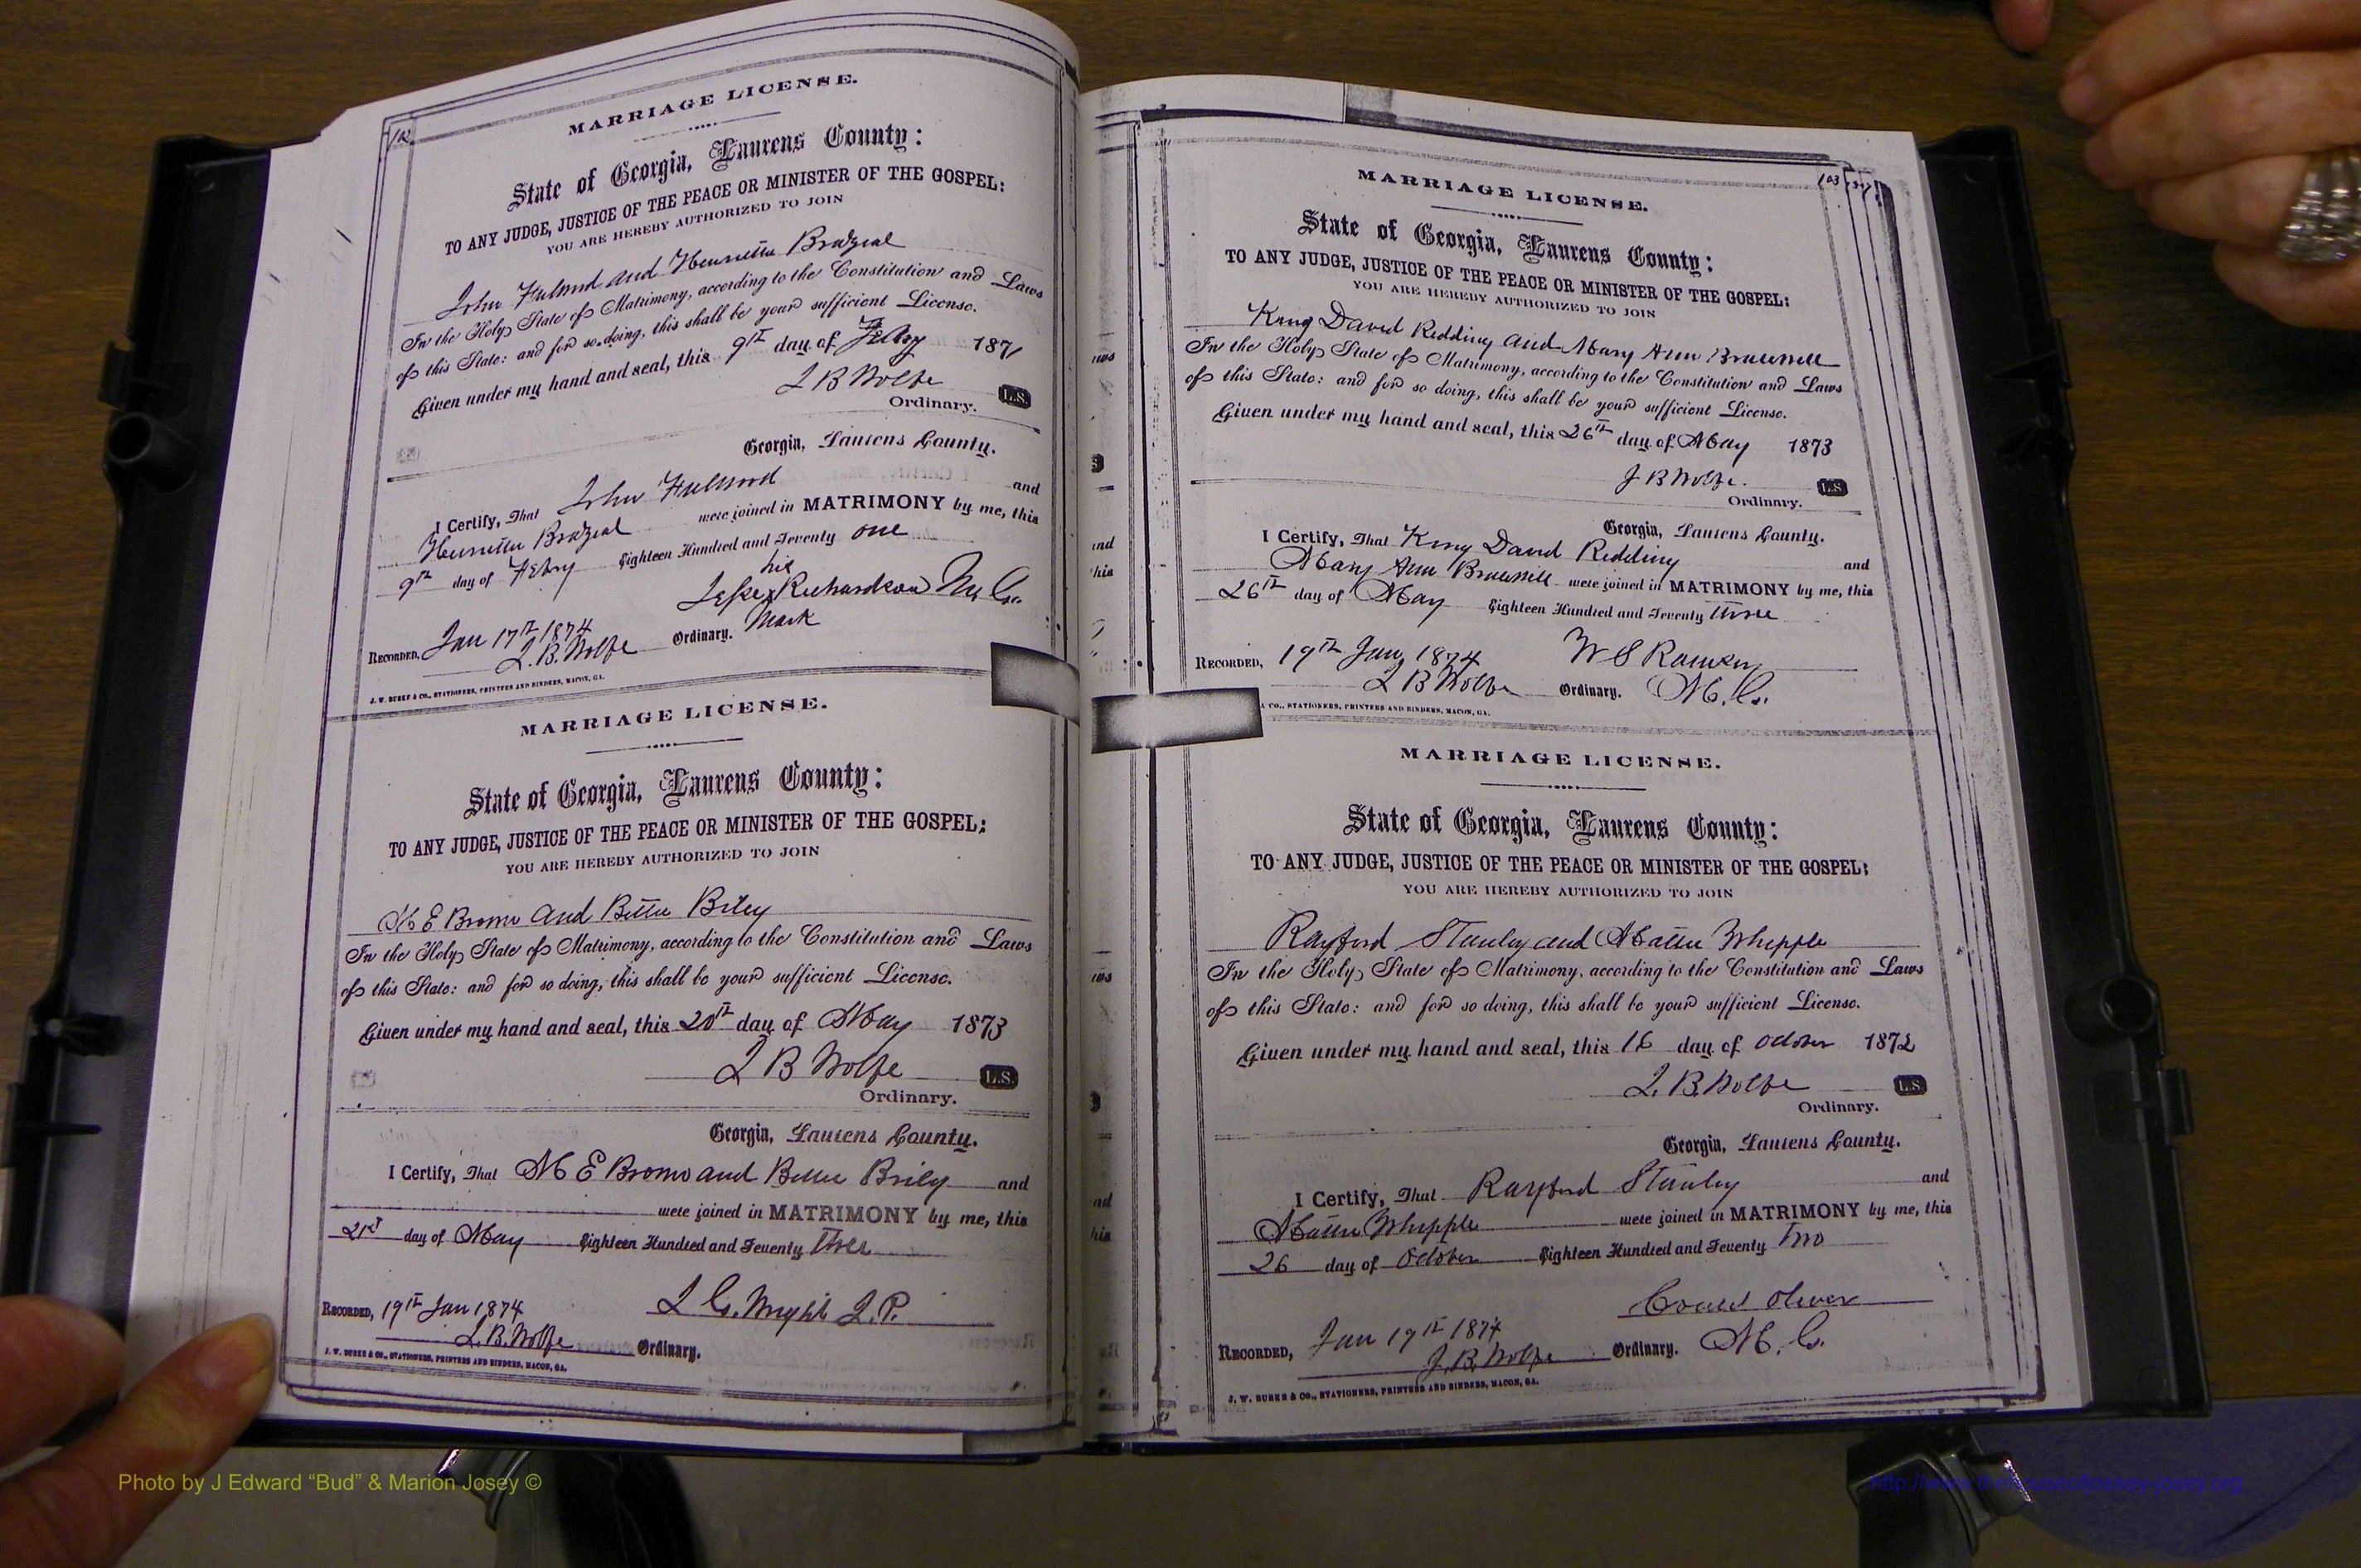 102
MARRIAGE LICENSE.
State of Georgia, Laurens County:
TO ANY JUDGE, JUSTICE OF THE PEACE OR MINISTER OF THE GOSPEL:
YOU ARE HEREBY AUTHORIZED TO JOIN
John Fulwood and Henrietta Brazeal
In the Holy State of Matrimony, according to the Constitution and Laws
of this State: and for so doing, this shall be your sufficient License.
Given under my hand and seal, this 9th day of Feby 1871
J B Wolfe L.S.
Ordinary.
Georgia, Laurens County.
I Certify, That John Fulwood and
Henrietta Brazeal were joined in MATRIMONY by me, this
9th day of Feby Eighteen Hundred and Seventy one
his
x Richardson M. G.
mark
RECORDED, Jan 17th 1874
J. B. Wolfe Ordinary.
J. W. BURKE & CO., STATIONERS, PRINTERS AND BINDERS, MACON, GA.
MARRIAGE LICENSE.
State of Georgia, Laurens County:
TO ANY JUDGE, JUSTICE OF THE PEACE OR MINISTER OF THE GOSPEL:
YOU ARE HEREBY AUTHORIZED TO JOIN
M E Brown and Bettie Briley
In the Holy State of Matrimony, according to the Constitution and Laws
of this State: and for so doing, this shall be your sufficient License.
Given under my hand and seal, this 20th day of May 1873
J B Wolfe L.S.
Ordinary.
Georgia, Laurens County.
I Certify, That M E Brown and Bettie Brily and
were joined in MATRIMONY by me, this
21st day of May Eighteen Hundred and Seventy three
J. C. Wright J. P.
RECORDED, 19th Jan 1874
J. B. Wolfe Ordinary.
J. W. BURKE & CO., STATIONERS, PRINTERS AND BINDERS, MACON, GA.
103
MARRIAGE LICENSE.
State of Georgia, Laurens County:
TO ANY JUDGE, JUSTICE OF THE PEACE OR MINISTER OF THE GOSPEL:
YOU ARE HEREBY AUTHORIZED TO JOIN
King David Redding and Mary Ann
In the Holy State of Matrimony, according to the Constitution and Laws
of this State: and for so doing, this shall be your sufficient License.
Given under my hand and seal, this 26th day of May 1873
J B Wolfe. L.S.
Ordinary.
Georgia, Laurens County.
I Certify, That King David Redding and
Mary Ann were joined in MATRIMONY by me, this
26th day of May Eighteen Hundred and Seventy three
W S Ramsey
RECORDED, 19th Jan, 1874
J B Wolfe Ordinary. M. G.
CO., STATIONERS, PRINTERS AND BINDERS, MACON, GA.
MARRIAGE LICENSE.
State of Georgia, Laurens County:
TO ANY JUDGE, JUSTICE OF THE PEACE OR MINISTER OF THE GOSPEL:
YOU ARE HEREBY AUTHORIZED TO JOIN
Rayford Stanley and Mattie Whipple
In the Holy State of Matrimony, according to the Constitution and Laws
of this State: and for so doing, this shall be your sufficient License.
Given under my hand and seal, this 16 day of October 1872
J. B. Wolfe L.S.
Ordinary.
Georgia, Laurens County.
I Certify, That Rayford Stanley and
Mattie Whipple were joined in MATRIMONY by me, this
26 day of October Eighteen Hundred and Seventy Two
Oliver
RECORDED, Jan 19th 1874
J. B. Wolfe Ordinary. M. G.
J. W. BURKE & CO., STATIONERS, PRINTERS AND BINDERS, MACON, GA.
Photo by J Edward “Bud” & Marion Josey ©